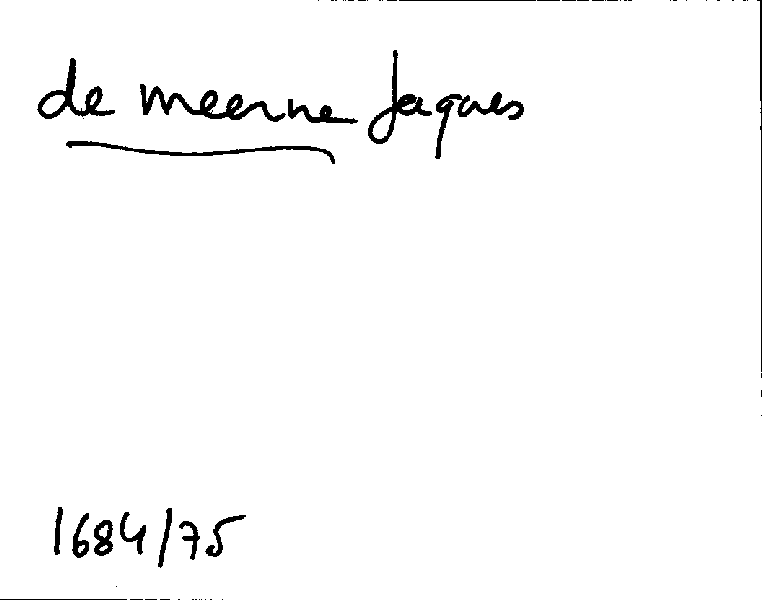 de meerne Jaques
1684/75